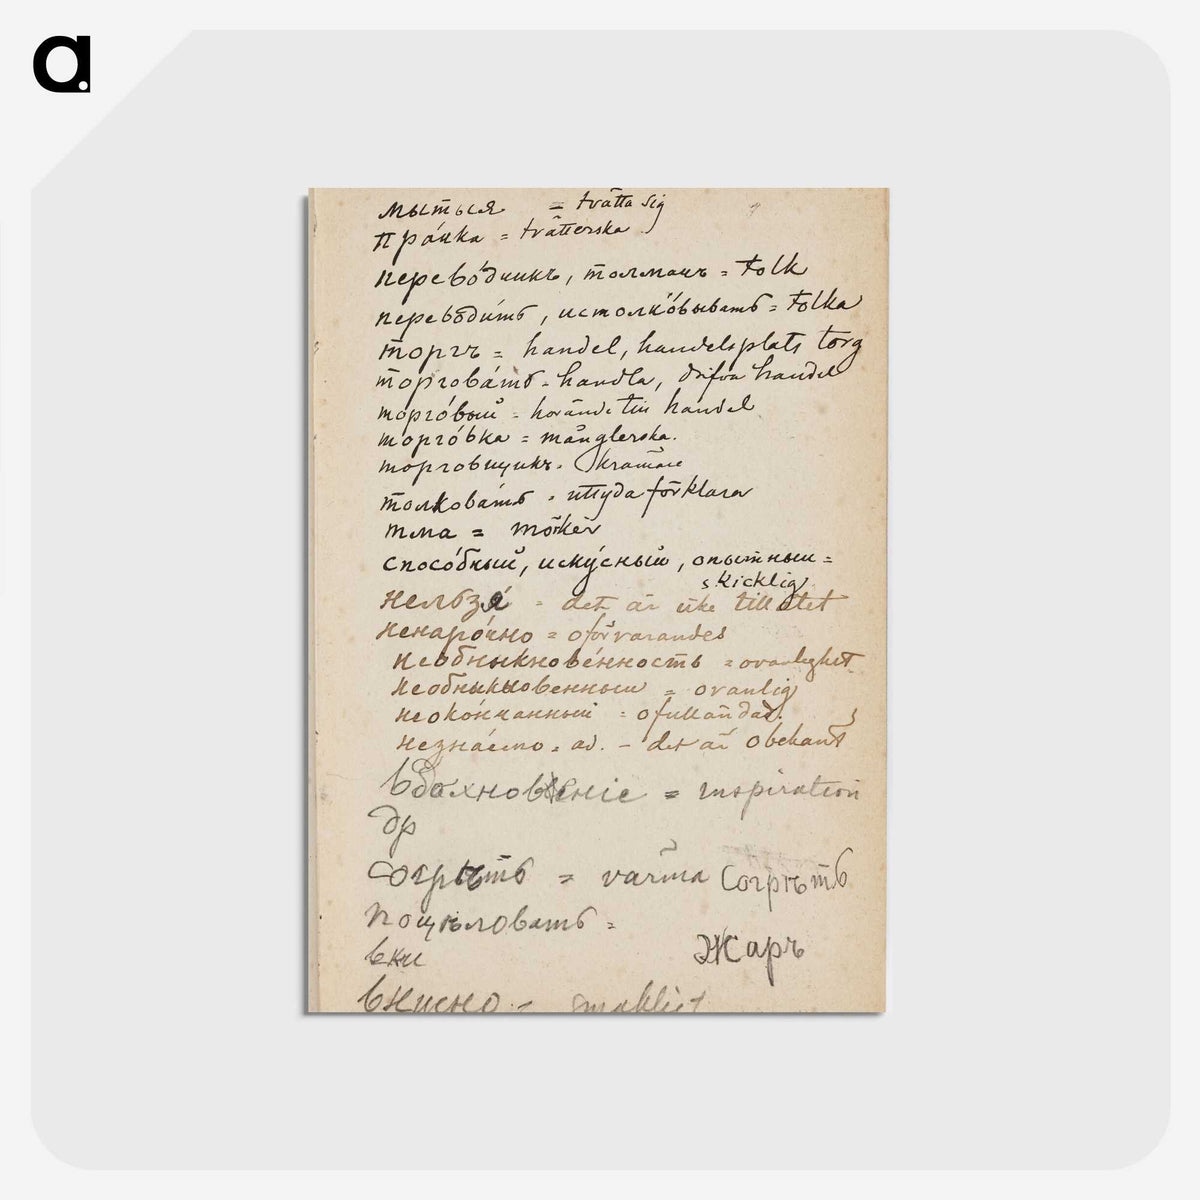 a.
мыться = tvätta sig
прáчка = tvätterska
перевóдчикъ, толмачъ = tolk
переводи́ть, истолкóвывать = tolka
торгъ = handel, handelsplats torg
торговáть - handla, drifva handel
торгóвый = hörande till handel
торгóвка = månglerska.
торговщикъ. kramare
толковáть = uttyda förklara
тма = mörker
спосóбный, искýсный, опытный =
skicklig
нельзя́ = det är icke tillåtet
ненарóчно = oförvarandes
необыкновéнность = ovanlighet
необыкновенный = ovanlig
неокóнчанный = ofulländad.
незнáемо = ad. - det är obekant
вдохновеніе = inspiration
др
согрѣть = värma согрѣть
поцѣловать =
вки Жаръ
вкусно - smakligt